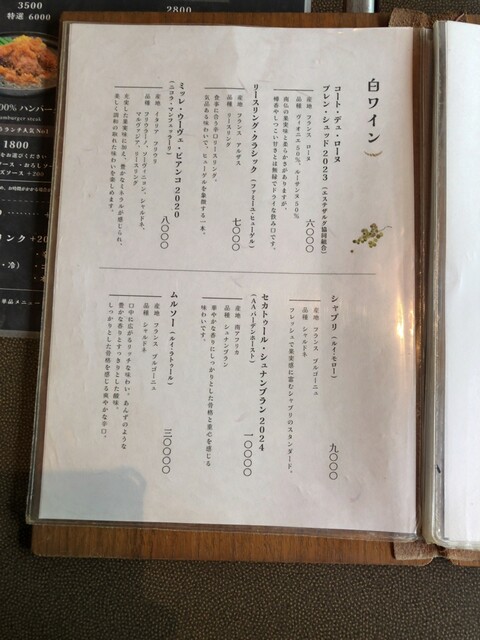 白ワイン
コート・デュ・ローヌ
ブレン・シュッド2023 (エステザルグ協同組合)
六〇〇〇
産地 フランス ローヌ
品種 ヴィオニエ50%、ルーサンヌ50%
南仏の果実味と柔らかさがありますが、
樽香やしつこい甘さとは無縁でドライな飲み口です。
リースリング・クラシック (ファミーユ・ヒューゲル)
七〇〇〇
産地 フランス アルザス
品種 リースリング
食事に合う辛口リースリング。
気品ある味わいで、ヒューゲルを象徴する一本。
ミッレ・ウーヴェ・ビアンコ2020
(ニコラ・マンフェッラーリ)
八〇〇〇
産地 イタリア フリウリ
品種 フリウラーノ、ソーヴィニョン、シャルドネ、
マルヴァジア、リースリング
充実した果実味に加え、豊かなミネラルが感じられ、
楽しく調和の取れた味わいを楽しめます。
シャブリ (ルイ・モロー)
九〇〇〇
産地 フランス ブルゴーニュ
品種 シャルドネ
フレッシュで果実感に富むシャブリのスタンダード。
セカトゥール・シュナンブラン2024
(AAバーデンホースト)
一〇〇〇〇
産地 南アフリカ
品種 シュナンブラン
華やかな香りにしっかりとした骨格と重心を感じる
味わいです。
ムルソー (ルイ・ラトゥール)
三〇〇〇〇
産地 フランス ブルゴーニュ
品種 シャルドネ
口中に広がるリッチな味わい。あんずのような
豊かな香りとすっきりとした酸味。
しっかりとした骨格を感じる爽やかな辛口。
3500
特選 6000
2800
00% ハンバー
amburger steak
るランチ人気No1
1800
をお選びください
ース・おろしソ
ズソース +200
リンク +20
・冷)
単品メニュー